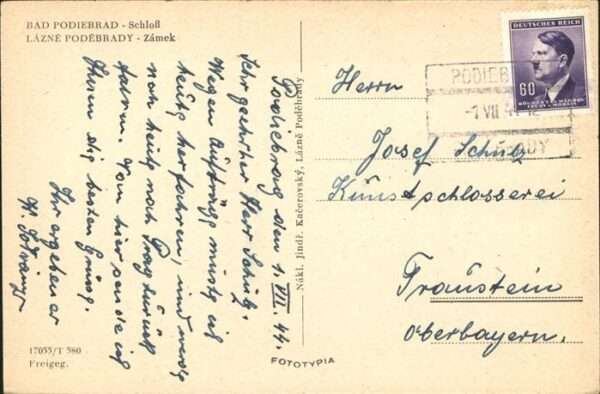 BAD PODIEBRAD - Schloß
LÁZNĚ PODĚBRADY - Zámek
Podiebrad den 1. VII. 44.
Sehr geehrter Herr Schulz.
Wegen Aufträge mußte ich
heute herfahren, und werde
noch heute nach Prag zurück
fahren. Von hier sende ich
Ihnen die besten Grüße.
Ihr ergebener
17055/T 580
Freigeg.
Nákl. Jindř. Kačerovský, Lázně Poděbrady
FOTOTYPIA
DEUTSCHES REICH
60
BÖHMEN UND MÄHREN
PODIEB
-1 VII 4 12
ADY
Herrn
Josef Schulz
Kunstschlosserei
Traunstein
Oberbayern.